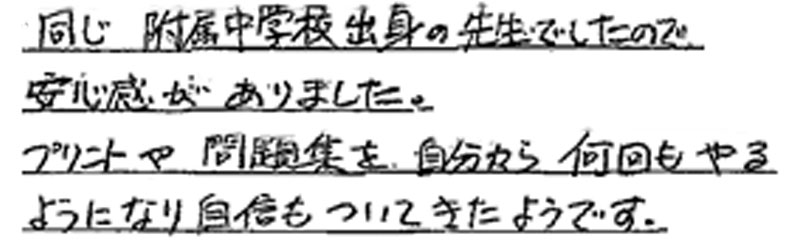 同じ 附属中学校出身の先生でしたので
安心感が ありました。
プリントや 問題集を 自分から 何回も やる
ようになり自信も ついてきたようです。